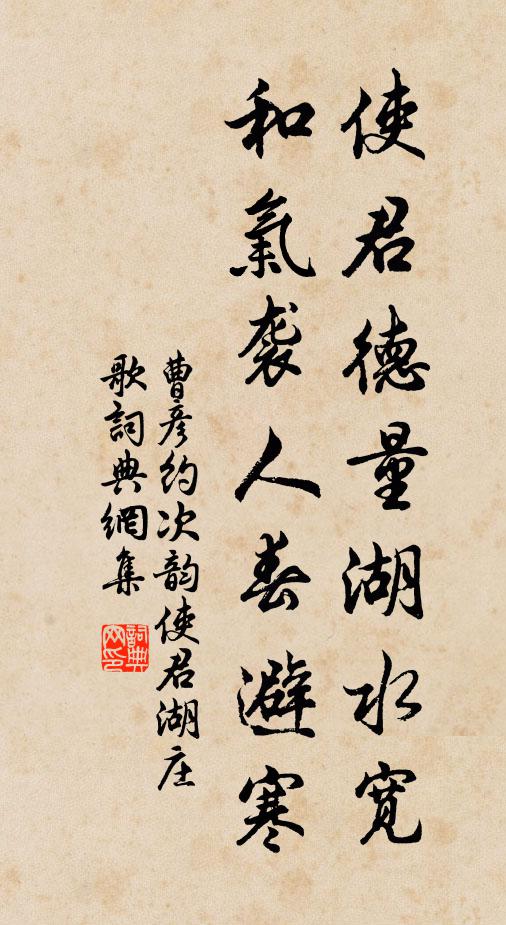 使君德量湖水寬
和氣袭人春避寒
曹彦約次韵使君湖庄
歌詞典網集
詞典
网印